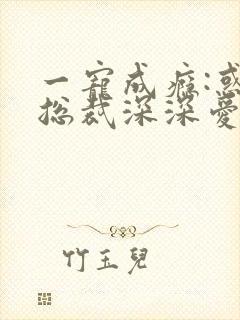 一寵成癮:惑
總裁深深愛
竹玉兒